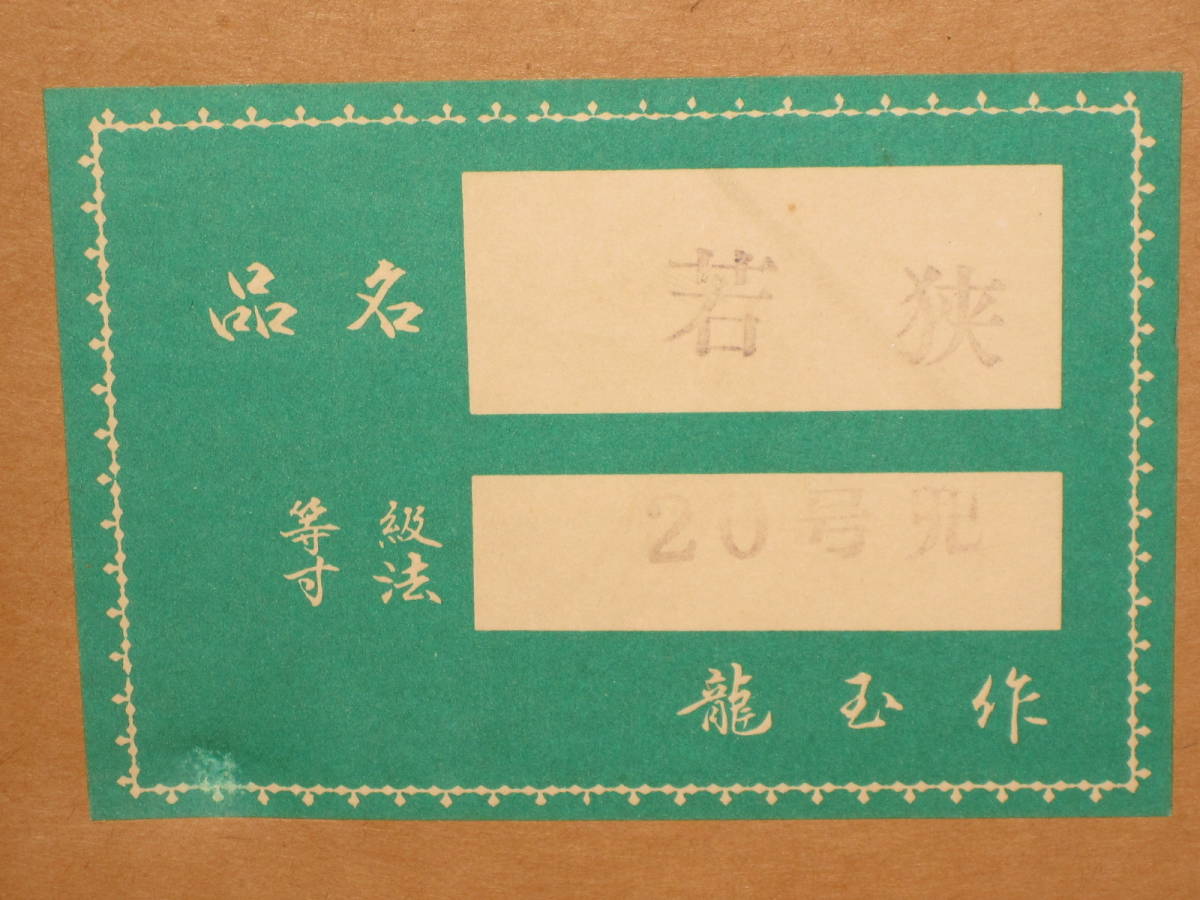 品名 若狭
等級
寸法 20号兜
龍玉作